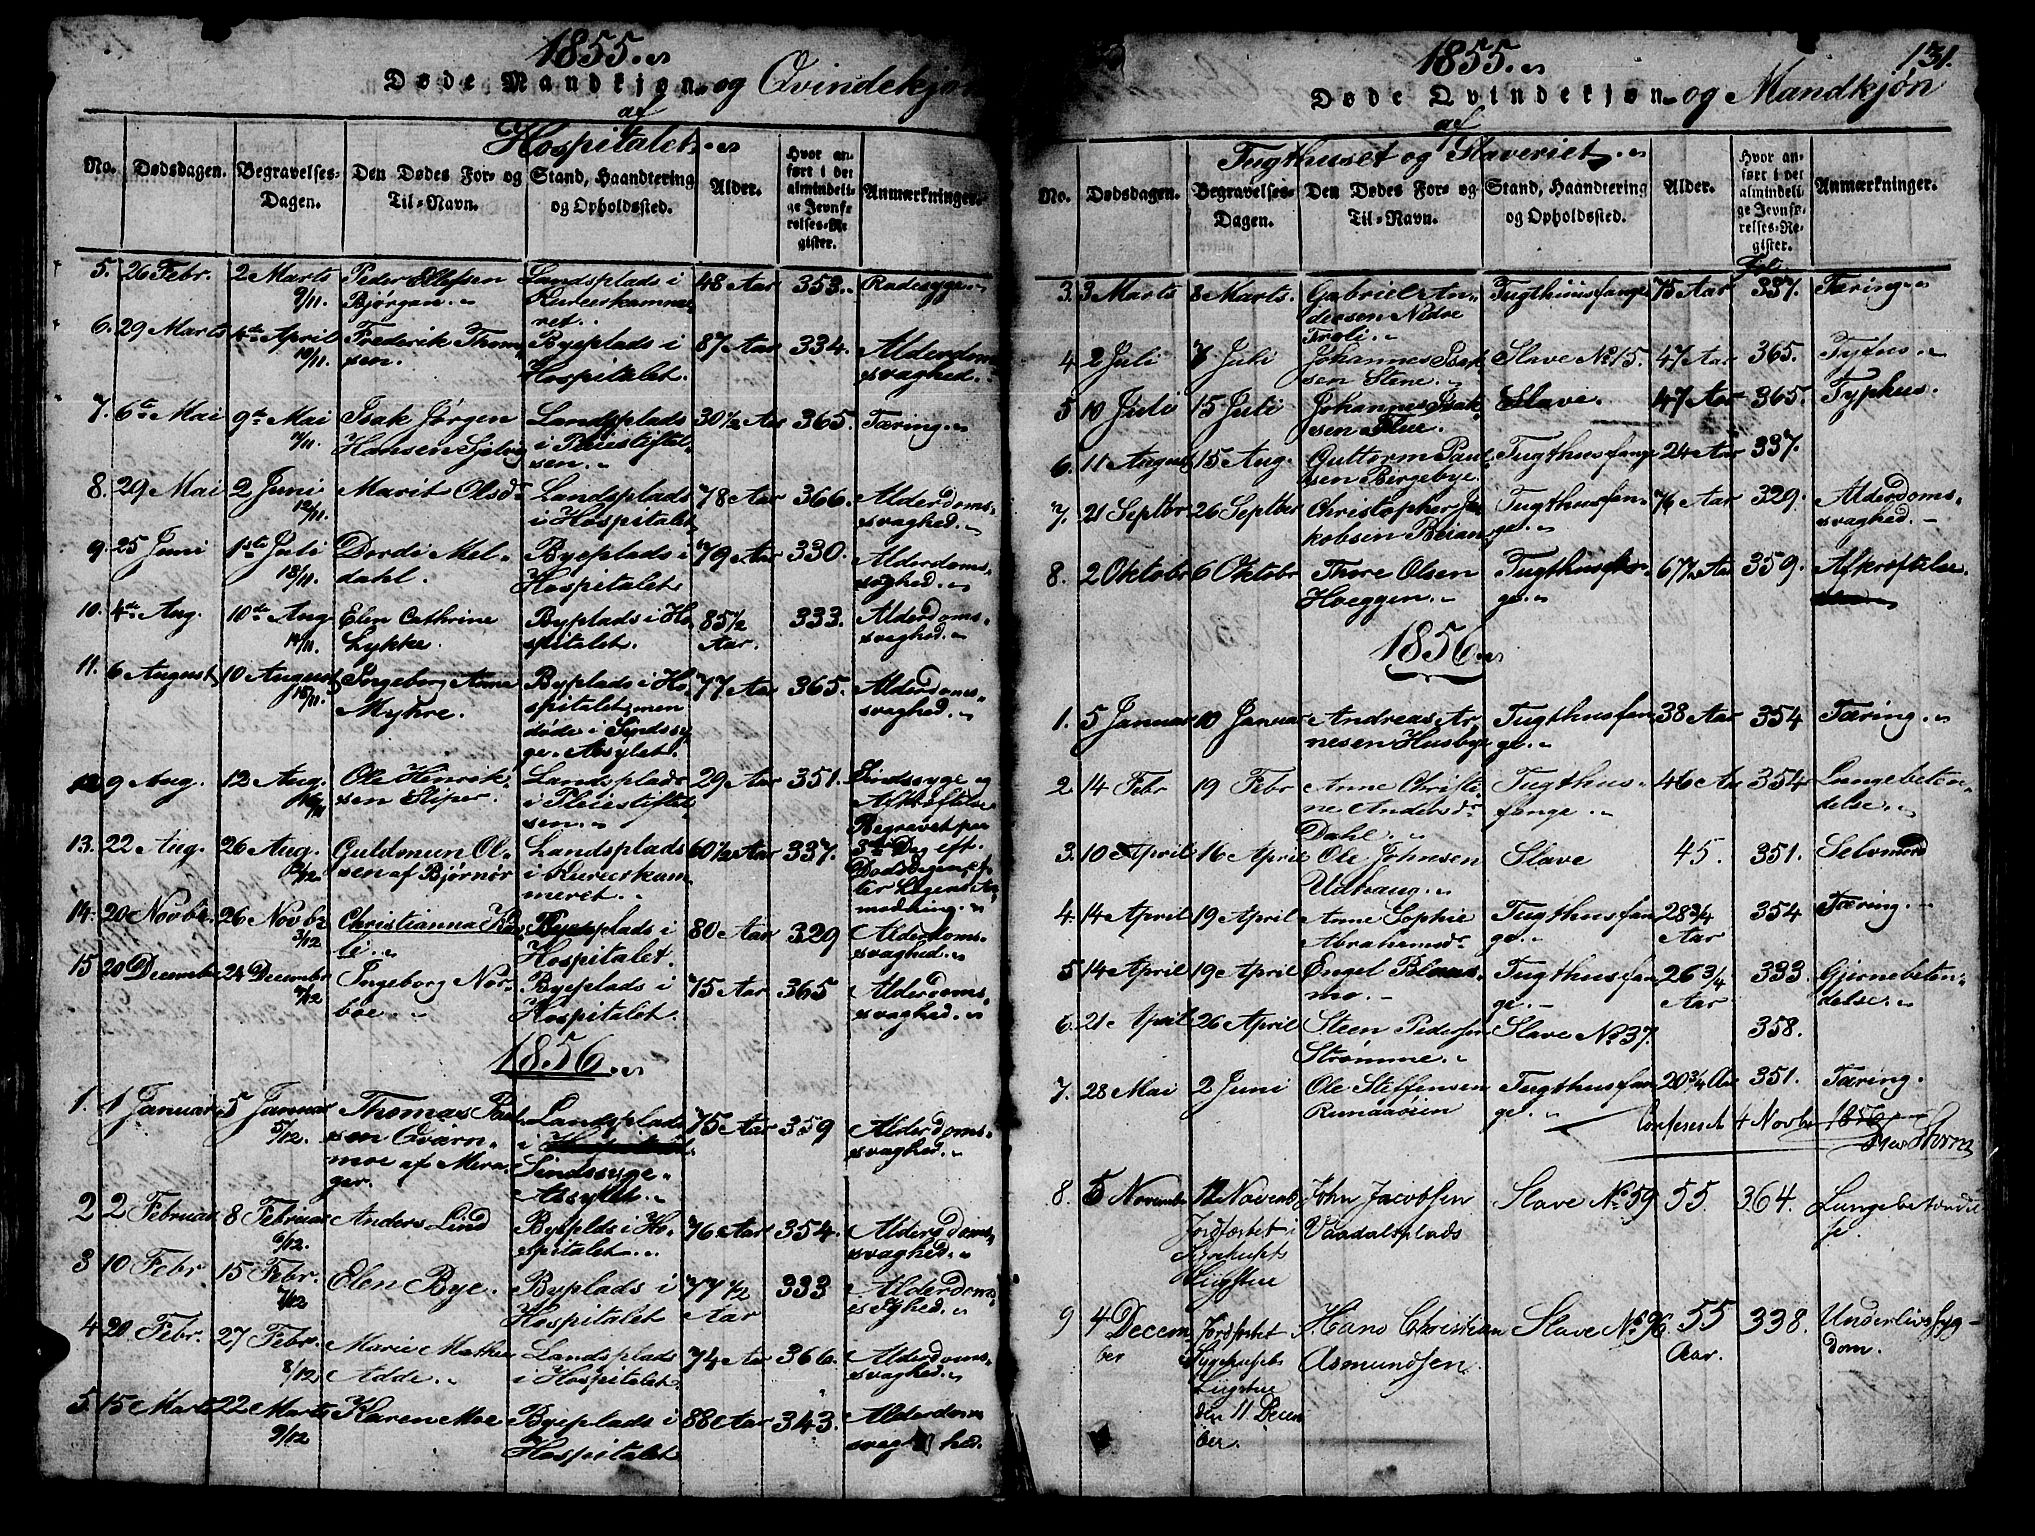 1855.
Døde Mandkjøn og Qvindekjøn
af
Hospitalet.
No. Dødsdagen. Begravelses-Dagen. Den Dødes For- og Til-Navn. Stand, Haandtering og Opholdssted. Alder. Hvor anført i det almindelige Jevnførelses-Register. Anmærkninger.
5. 26 Febr. 2 Marts 9/11. Peder Ellefsen Bjørgan. Landsplads i Kureerkammeret. 48 Aar 353. Radesyge.
6. 29 Marts 4de April 10/11. Frederik Thomesen. Byeplads i Hospitalet. 87 Aar 334. Alderdomssvaghed.
7. 6te Mai 9de Mai 7/11. Isak Jørgen Hansen Landsplads i Pleiestiftelsen. 30 1/2 Aar 365. Tæring.
8. 29 Mai 2 Juni 12/11. Marit Olsdr Landsplads i Hospitalet 78 Aar 366. Alderdomssvaghed.
9. 25 Juni 1ste Juli 13/11. Dordi Meldahl. Byeplads i Hospitalet 79 Aar 330. Alderdomssvaghed.
10. 4de Aug. 10de Aug 14/11. Elen Cathrine Lykke. Byplads i Hospitalet. 85 1/2 Aar. 333. Alderdomssvaghed.
11. 6 August 10 August 15/11. Ingeborg Anne Myhre. Byplads i Hospitalet, men døde i Sindssyge-Asylet. 77 Aar 365. Alderdomssvaghed.
12 9 Aug. 12 Aug. Ole Henriksen Landsplads i Pleiestiftelsen. 29 Aar 351. Sindssyge og Afkræftelse Begravet paa 3de Dag eft. Dødsdagen efter Lægens Anmodning.
13. 22 Aug. 26 Aug. Guldmun Olsen af Bjørnør Landsplads i Kureerkammeret. 60 1/2 Aar 337.
14. 20 Novbr. 26 Novbr 3/12 Christianna Landsplads i Hospitalet. 80 Aar 329 Alderdomssvaghed.
15 20 December 24 Decembr 7/12 Ingeborg Norbøe. Byeplads i Hospitalet. 75 Aar 365 Alderdomssvaghed.
1856.
1. 1 Januar 5 Januar 5/12. Thomas Paulsen Qvarnmoe af Meraker. Landsplads i Sindssyge-Assylet. 75 Aar 359 Alderdomssvaghed.
2 2 Februar 8 Februar 9/12. Anders Lind Byeplds i Hospitalet. 76 Aar 354. Alderdomssvaghed.
3 10 Febr. 15 Febr. 7/12 Elen Bye. Byplads i Hospitalet 77 1/2 Aar 333 Alderdomssvaghed.
4 20 Febr. 27 Febr. 8/12 Marie Adde. Landsplads i Hospitalet. 74 Aar 366. Alderdomssvaghed.
5. 15 Marts 22 Marts 9/12 Karen Moe Byeplads i Hospitalet 88 Aar 343. Alderdomssvaghed.
1855. 131.
Døde Qvindekjøn og Mandkjøn
af
Tugthuset og Slaveriet.
No. Dødsdagen. Begravelses-Dagen. Den Dødes For- og Til-Navn. Stand, Haandtering og Opholdssted. Alder. Hvor anført i det almindelige Jevnførelses-Register. Anmærkninger.
Fol.
3. 3 Marts 8 Marts. Gabriel Andersen Nedre Troli. Tugthuusfange 75 Aar 337. Tæring.
4 2 Juli 7 Juli Johannes Isaksen Stene. Slave No 15. 47 Aar 365. Tyfus.
5 10 Juli 15 Juli Johannes Isaksen Flue. Slave. 47 Aar 365. Typhus.
6. 11 August 15 Aug. Guttorm Paulsen Bergebye. Tugthusfange 24 Aar 337.
7. 21 Septbr 26 Septber Christopher Jakobsen Beian. Tugthusfange. 76 Aar 329. Alderdomssvaghed.
8. 2 Oktobr 6 Oktobr Thore Olsen Hoeggen. Tugthusfange. 67 Aar 359. Afkræftelse.
1856
1. 5 Januar 10 Januar Andreas Arnesen Husbye Tugthusfange. 38 Aar 354 Tæring.
2 14 Febr 19 Febr Anne Christine Andersdr Dahl. Tugthusfange. 46 Aar 354 Lungebetændelse.
3. 10 April 16 April Ole Johnsen Udhaug. Slave 45. 351. Selvmord
4. 14 April 19 April Anne Sophie Abrahamsdr Tugthusfange. 28 3/4 Aar 354 Tæring.
5 14 April 19 April Engel Tugthusfange. 26 3/4 Aar 333. Hjernebetændelse.
6. 21 April 26 April Steen Pedersen Strømme. Slave No 37. 358.
7. 28 Mai 2 Juni Ole Steffensen Tugthusfange. 20 3/4 Aar 351. Tæring.
Confereret 4 Novbr 1856
Storm
8. 5 Novembr 12 Novembr Jordfæstet i Sygehusets Liigstue John Jacobsen Værdalsplads Slave No 59 55 364. Lungebetændelse.
9 4 December Jordfæstet i Sygehusets Liigstue den 11 December. Hans Christian Asmundsen. Slave No 96. 55 Aar. 338. Underlivssygdom.